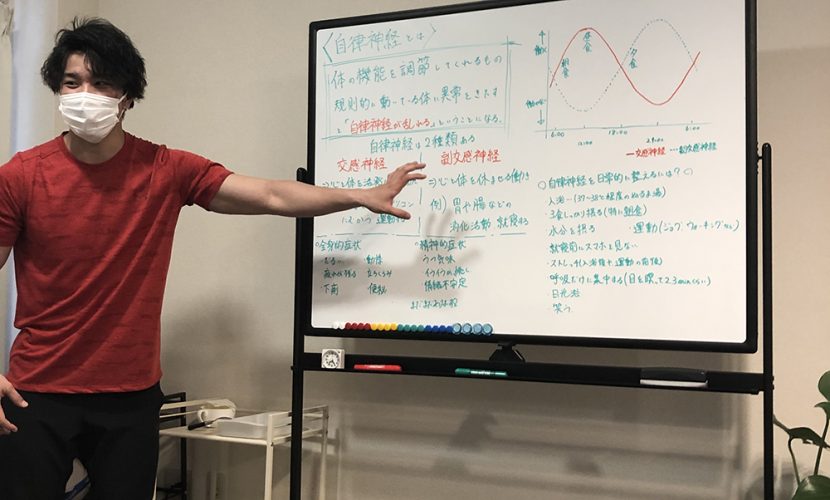 〈自律神経とは〉
体の機能を調節してくれるもの
規則的に動いている体に異常をきたす
と「自律神経が乱れる」ということになる。
自律神経は2種類ある
交感神経
副交感神経
⇒心と体を活
⇒心と体を休ませる働き
例)胃や腸などの
消化活動 就寝する
運動する
○全身的症状
だるい 動悸
疲れが残る 立ちくらみ
下痢 便秘
○精神的症状
うつ気味
イライラの
情緒不安定
働く
朝食
昼食
夕食
6:00
12:00
18:00
24:00
6:00
ー交感神経 …副交感神経
○自律神経を日常的に整えるには?○
・入浴-(37~38℃程度のぬるま湯)
・3食しっかり摂る(特に朝食)
・水分を摂る ・運動(ジョグ、ウォーキング
・就寝前にスマホを見ない
・ストレッチ(入浴後+運動の前後)
・呼吸だけに集中する(目を瞑って2.3minくらい)
・日光浴
・笑う